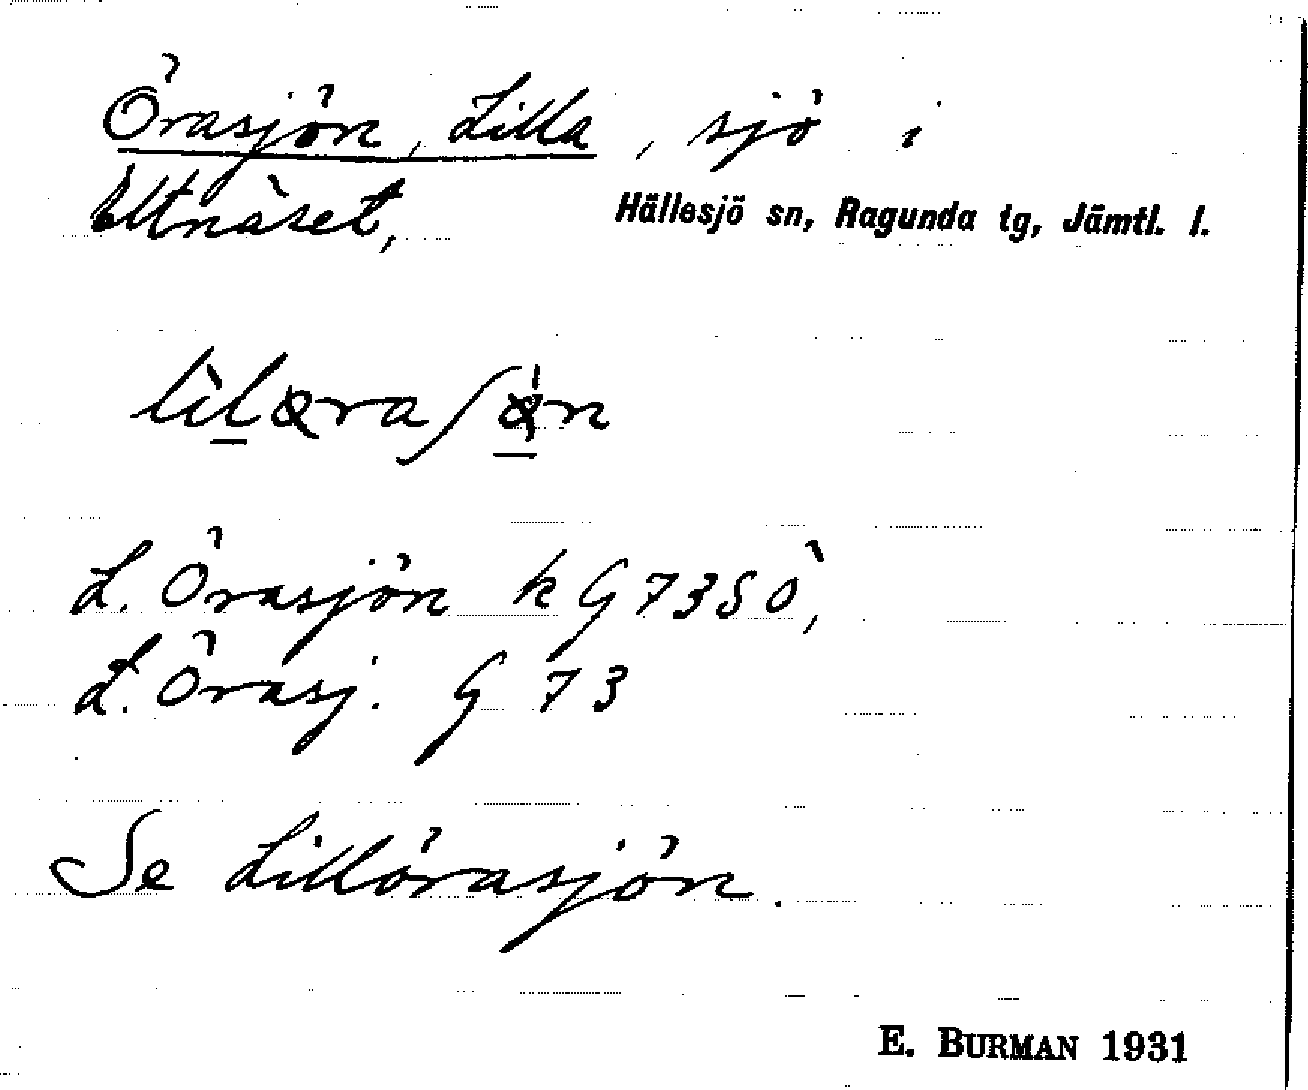 Örasjön, Lilla, sjö i
Västnäset, Hällesjö sn, Ragunda tg, Jämtl. l.
L. Örasjön k G 73 SÖ,
L. Örasj. G 73
Se Lillörasjön.
E. BURMAN 1931